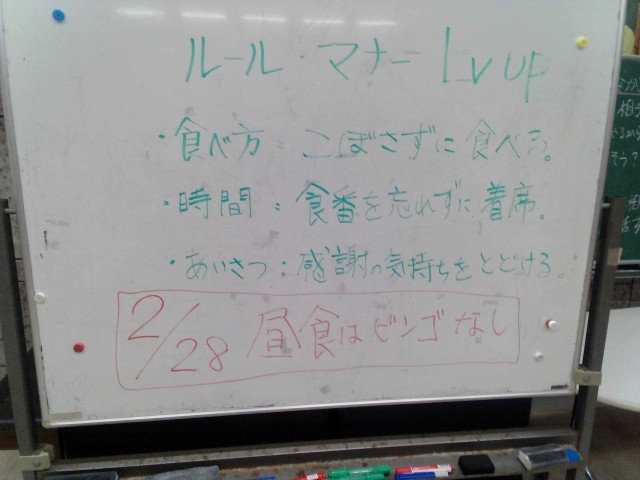 ルール・マナー Lv up
・食べ方：こぼさずに食べる。
・時間：食番を忘れずに着席。
・あいさつ：感謝の気持ちをとどける。
2/28 昼食はビンゴなし